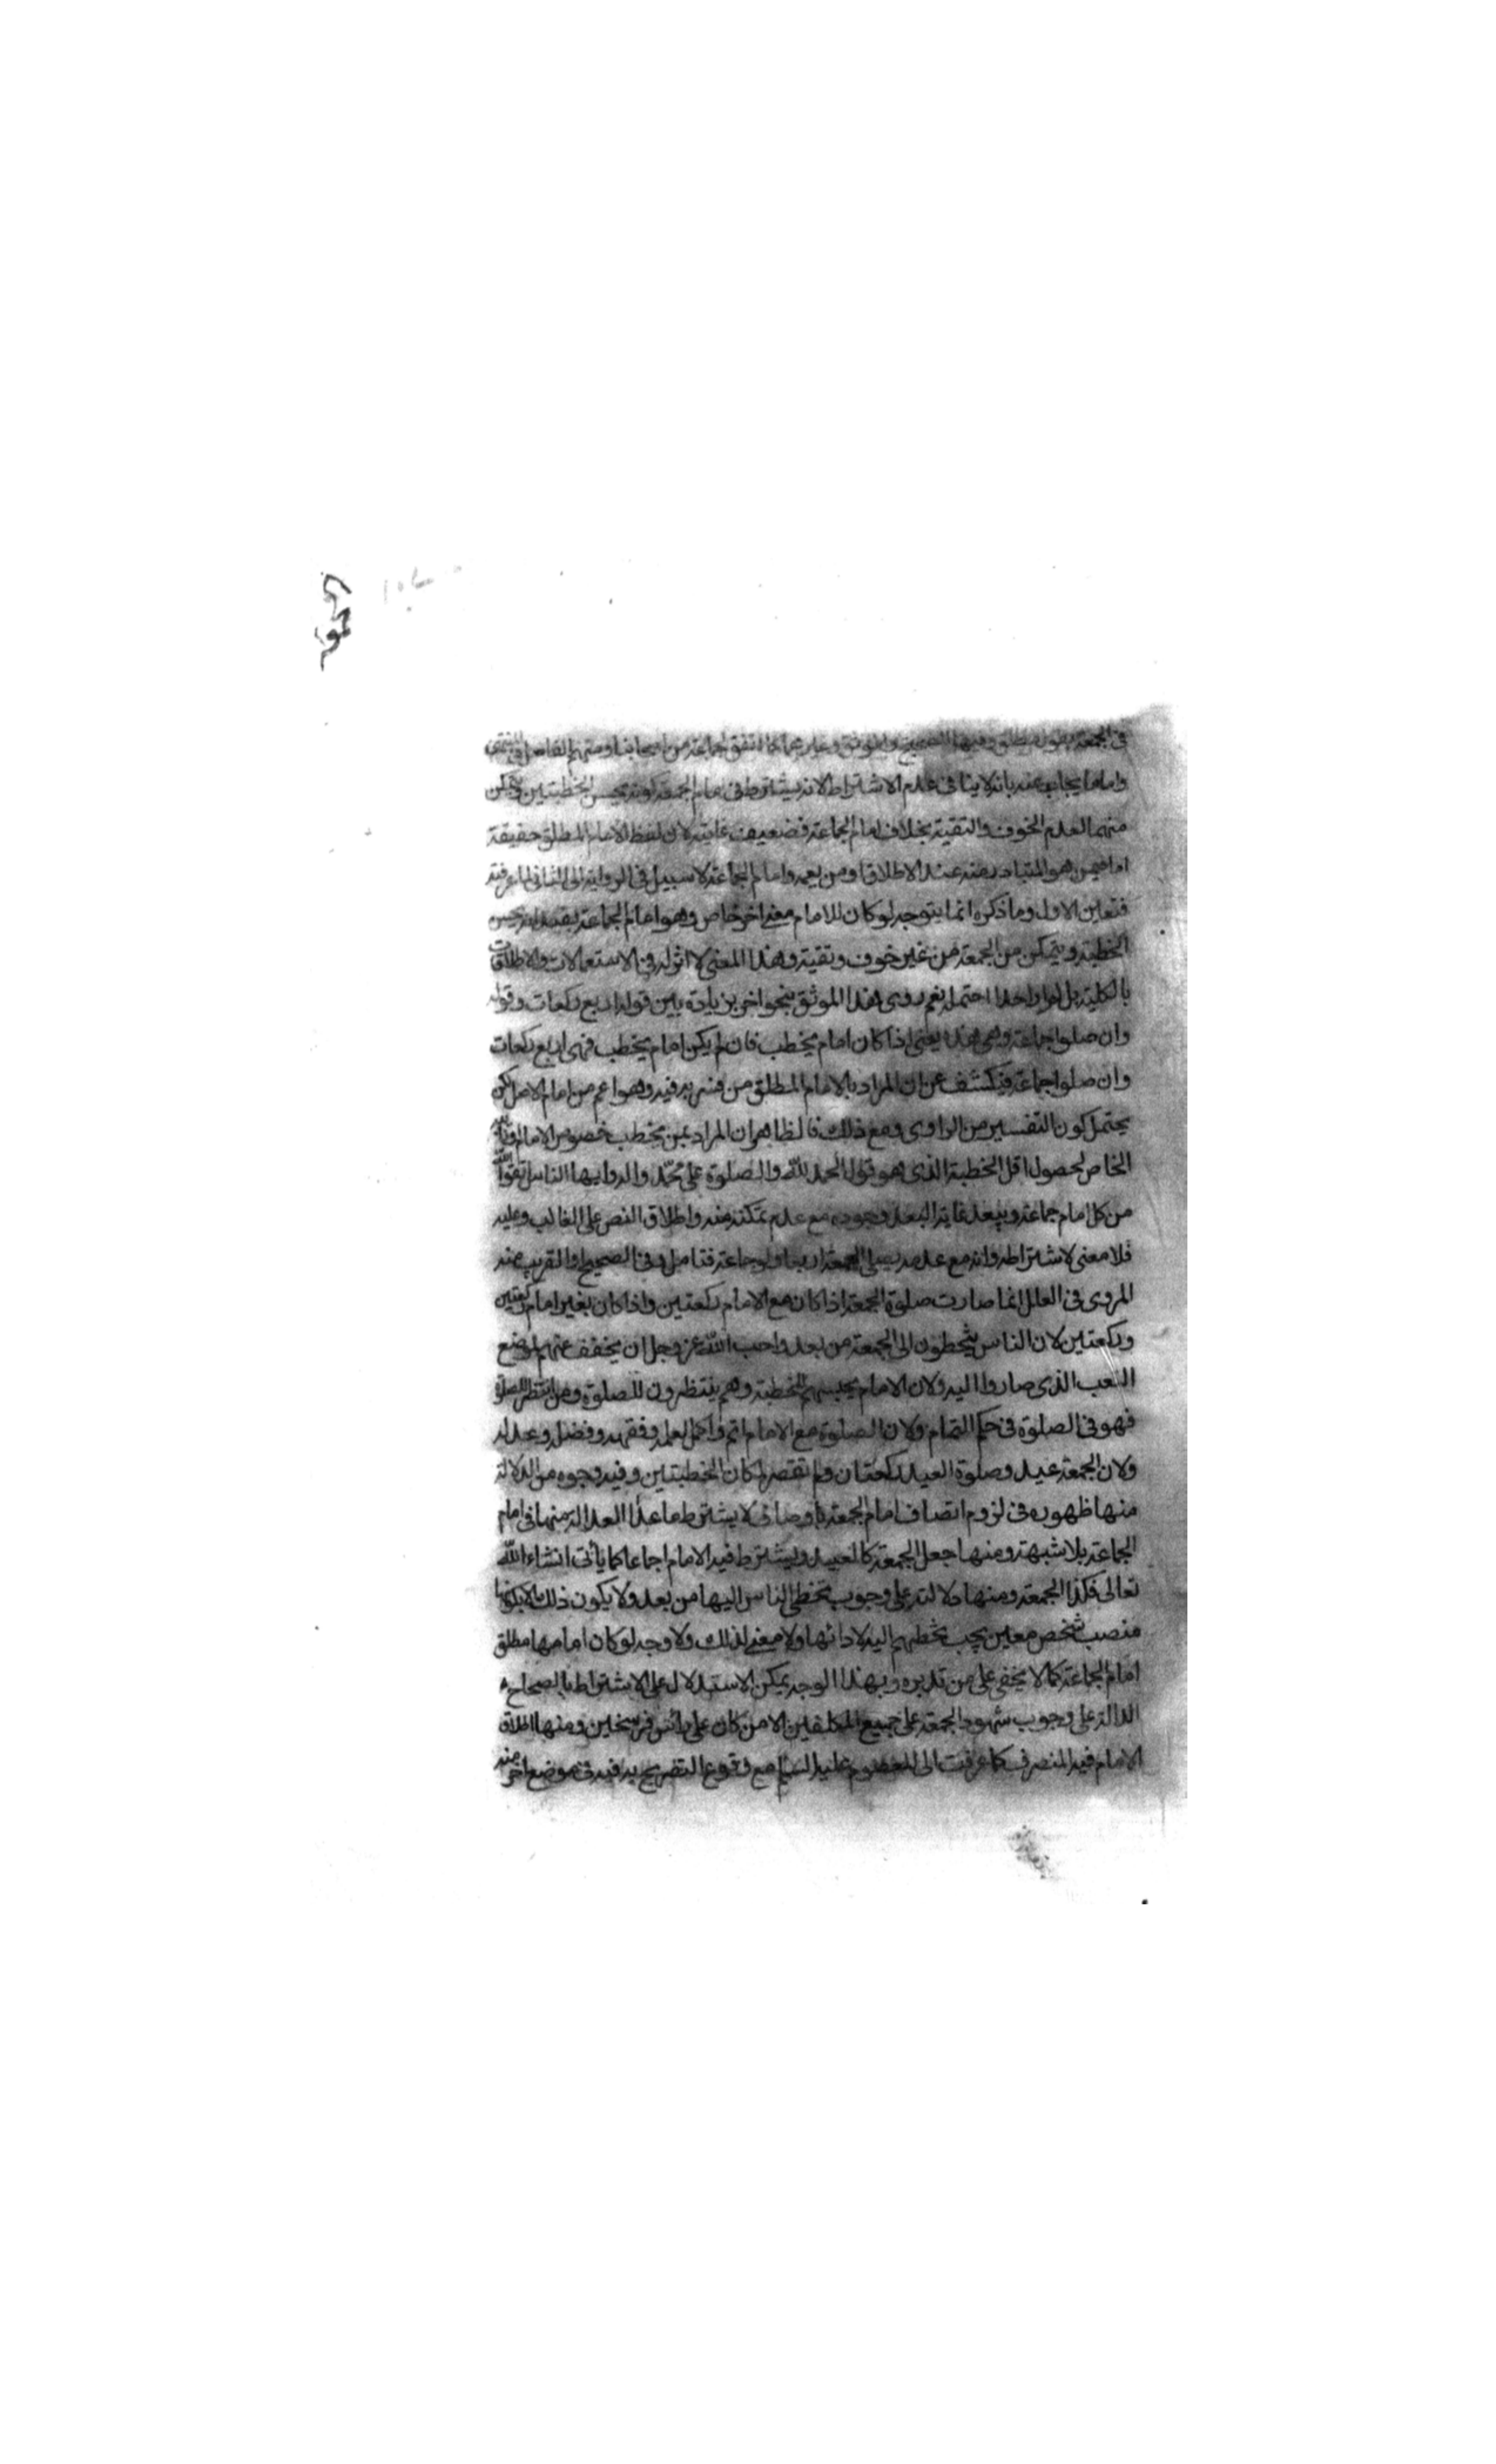 في الجمعة بقول مطلق وفيها الصحيح والموثق وغيرهما كما اتفق لجماعة من اصحابنا ومنهم الفاضل في المنتهى
واما ما يجاب عنه بانه لا ينافي عدم الاشتراط لانه يشترط في امام الجمعة كونه يحسن الخطبتين ويتمكن
منهما لعدم الخوف والتقية بخلاف امام الجماعة فضعيف غايته لان لفظ الامام المطلق حقيقة
اما فيمن هو المتبادر منه عند الاطلاق او من يعمه وامام الجماعة لا سبيل في الرواية الى الثاني لما عرفته
فتعين الاول وما ذكره انما يتوجه لو كان للامام معنى اخر خاص وهو امام الجماعة بقيد انه يحسن
الخطبة ويتمكن من الجمعة من غير خوف وتقية وهذا المعنى لا اثر له في الاستعمالات والاطلاقات
بالكلية بل لم ار احدا احتمله نعم روى هذا الموثق بنحو اخر بزيادة بين قوله اربع ركعات وقوله
وان صلوا جماعة وهي هذه يعني اذا كان امام يخطب فان لم يكن امام يخطب فهي اربع ركعات
وان صلوا جماعة فيكشف عن ان المراد بالامام المطلق من فسر به فيه وهو اعم من امام الاصل لكن
يحتمل كون التفسير من الراوى ومع ذلك فالظاهر ان المراد بمن يخطب خصوص الامام او نائبه
الخاص لحصول اقل الخطبة الذى هو قول الحمد لله والصلوة على محمد واله وايها الناس اتقوا الله
من كل امام جماعة ويبعد غاية البعد وجوده مع عدم تمكنه منه واطلاق النص على الغالب وعليه
فلا معنى لاشتراطه وانه مع عدمه يصلى الجمعة اربعا ولو جماعة فتامل وفي الصحيح او القريب منه
المروى في العلل انما صارت صلوة الجمعة اذا كان مع الامام ركعتين واذا كان بغير امام ركعتين
وركعتين لان الناس يتخطون الى الجمعة من بعد واحب الله عز وجل ان يخفف عنهم لموضع
التعب الذى صاروا اليه ولان الامام يحبسهم للخطبة وهم ينتظرون للصلوة ومن انتظر للصلوة
فهو في الصلوة في حكم التمام ولان الصلوة مع الامام اتم واكمل لعلمه وفقهه وفضله وعدله
ولان الجمعة عيد وصلوة العيد ركعتان ولم تقصر لمكان الخطبتين وفيه وجوه من الدلالة
منها ظهوره في لزوم اتصاف امام الجمعة باوصاف لا يشترط ما عدا العدالة منها في امام
الجماعة بلا شبهة ومنها جعل الجمعة كالعيد ويشترط فيه الامام اجماعا كما يأتي انشاء الله
تعالى فكذا الجمعة ومنها دلالته على وجوب تخطى الناس اليها من بعد ولا يكون ذلك الا بكونها
منصب شخص معين يجب تخطيهم اليه لادائها ولا معنى لذلك ولا وجه لو كان امامها مطلق
امام الجماعة كما لا يخفى على من تدبره وبهذا الوجه يمكن الاستدلال على الاشتراط بالصحاح
الدالة على وجوب شهود الجمعة على جميع المكلفين الا من كان على رأس فرسخين ومنها اطلاق
الامام فيه المنصرف كما عرفت الى المعصوم عليه السلم مع وقوع التصريح به فيه في موضع اخر منه